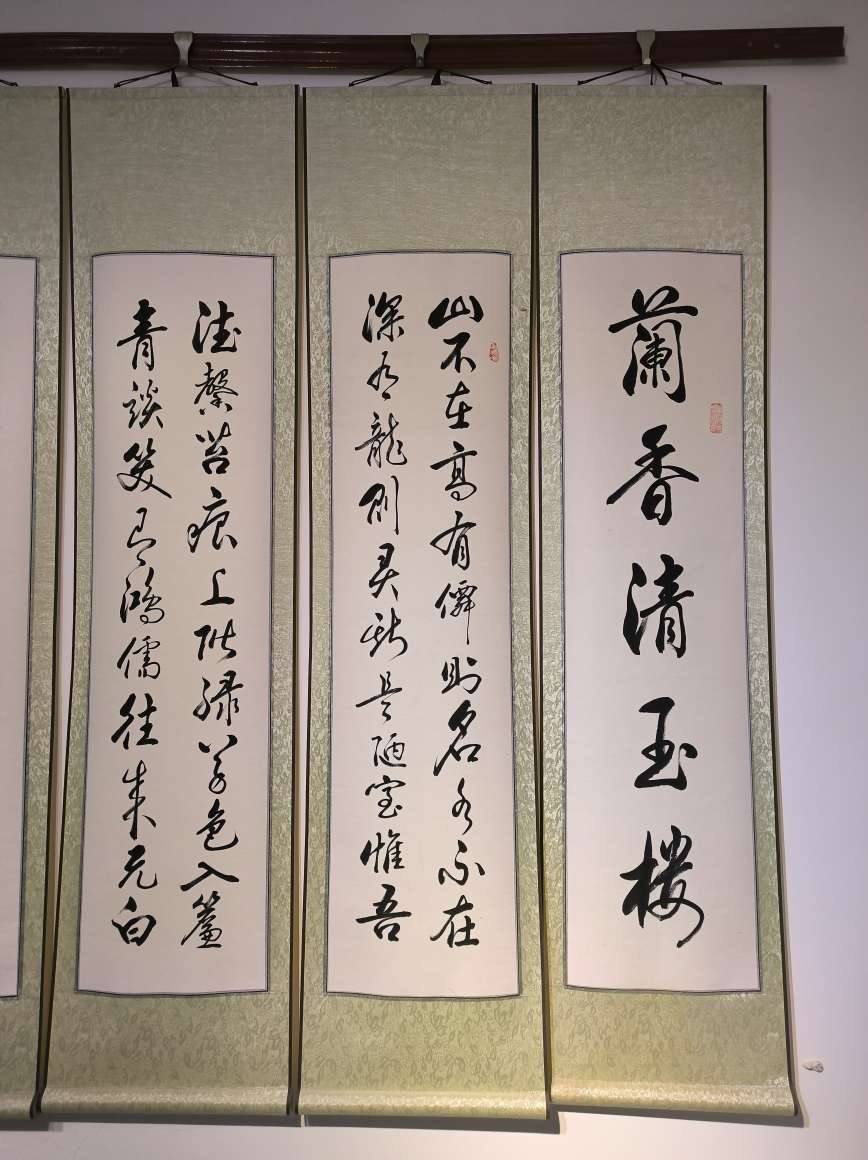 蘭香清玉樓
山不在高有僊則名水不在
深有龍則灵斯是陋室惟吾
德馨苔痕上階綠草色入簾
青談笑有鴻儒往来无白